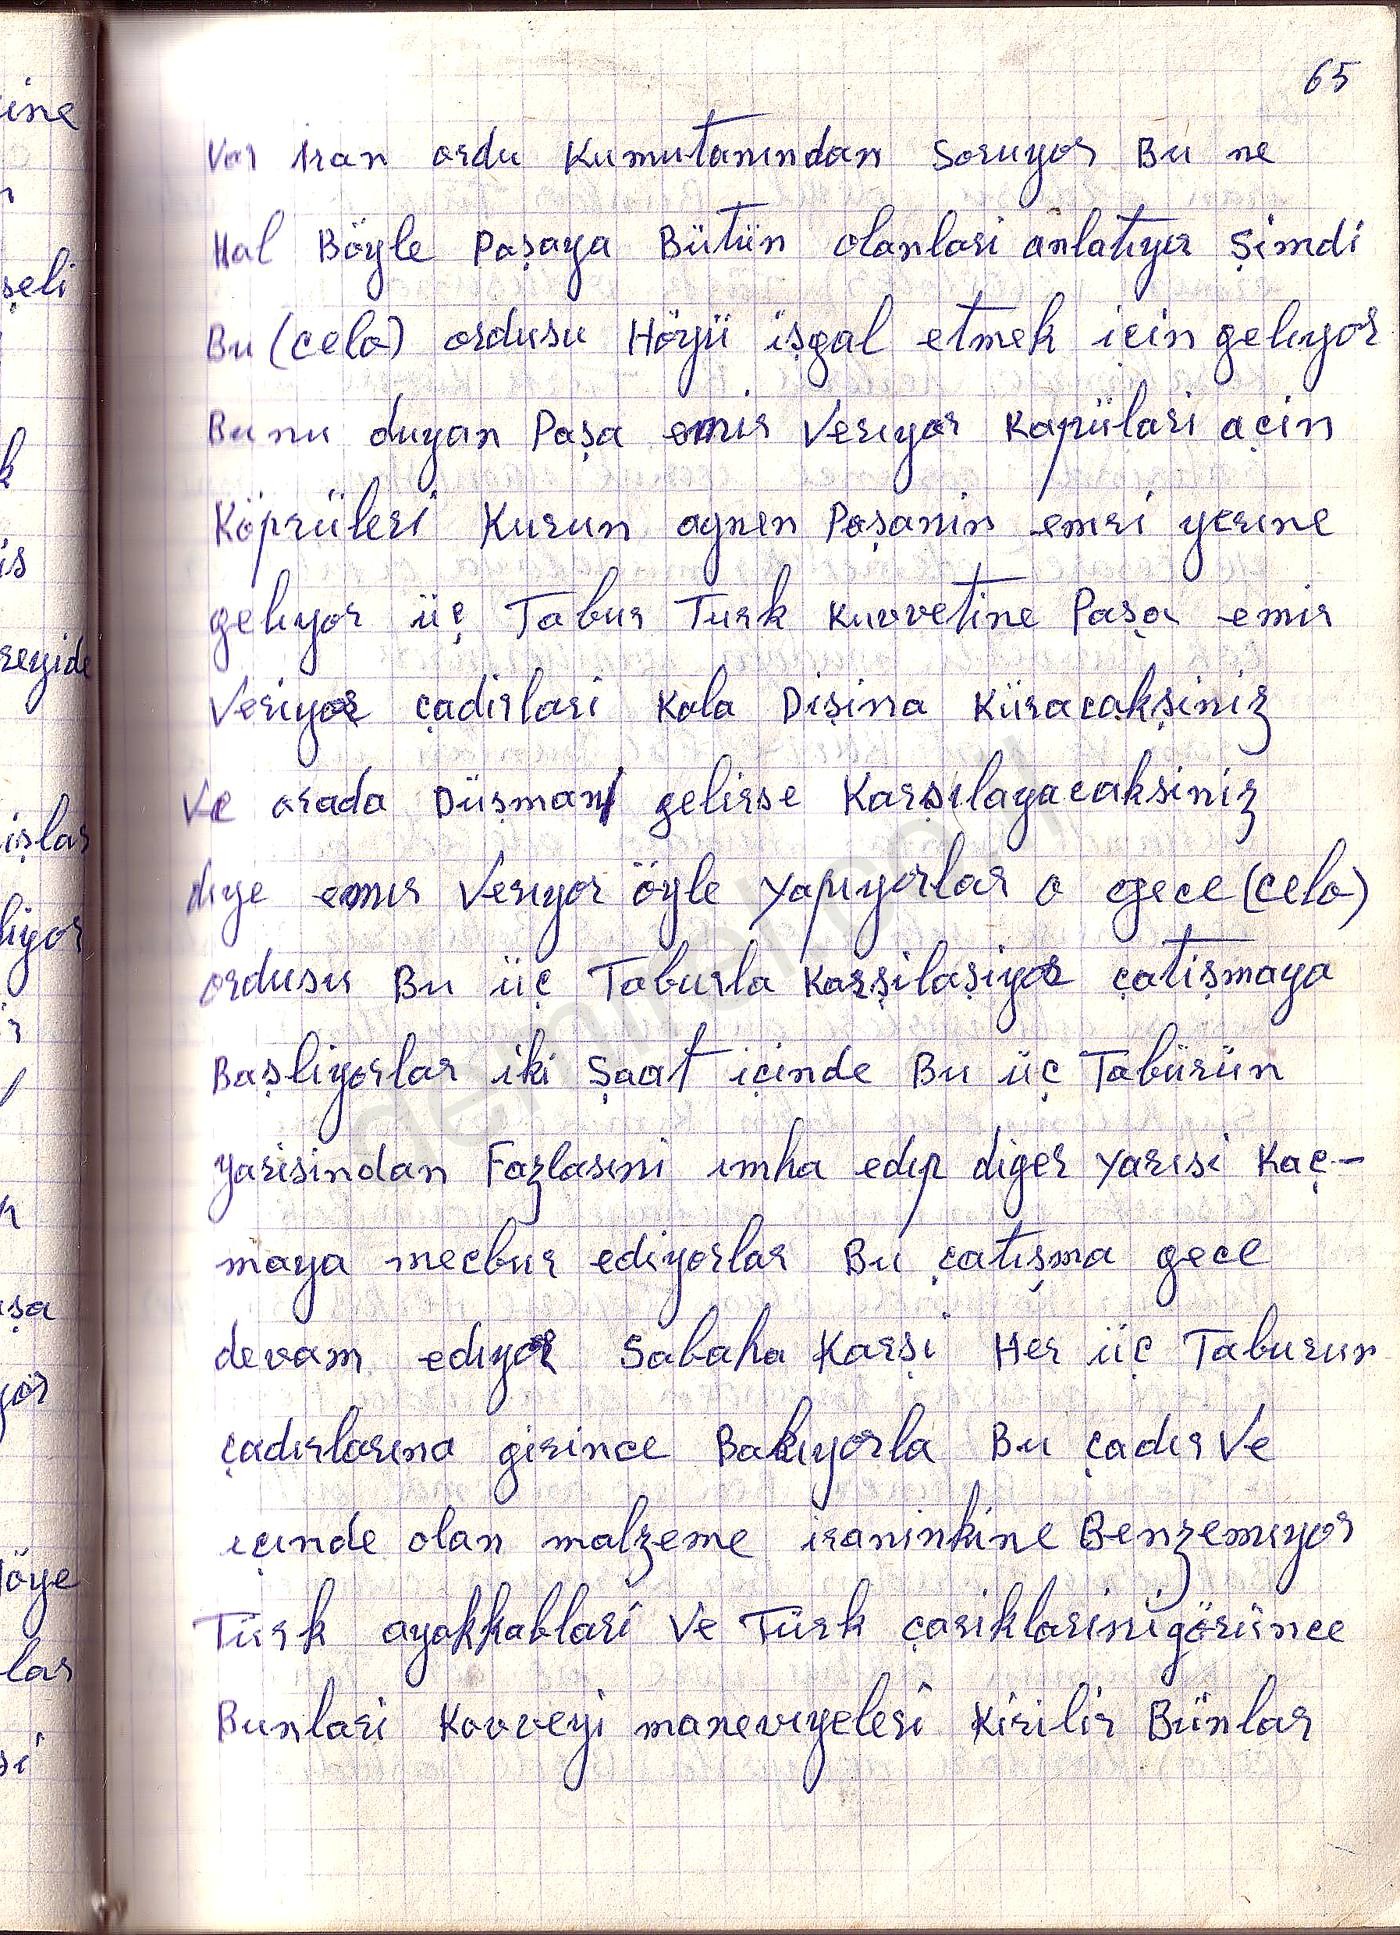 65
Var iran ordu Kumutanından Soruyor Bu ne
Hal Böyle Paşaya Bütün olanlari anlatıyor Şimdi
Bu (celo) ordusu Höyü işgal etmek için gelıyor
Bunu duyan Paşa emir Verıyor Kapüilari açin
Köprüleri Kurun aynen Paşanin emri yerıne
gelıyor üç Tabur Turk Kuvvetine Paşa emir
Veriyor çadirlari Kala Dişina Küracakşiniz
Ve orada Düşman gelirse Karşılayacaksiniz
dıye emır Verıyor öyle yapıyorlar o gece (celo)
ordusu Bu üç Taburla Karşilaşiyor çatişmaya
Başliyorlar iki Şaat içinde Bu üç Tabürün
yarisindan Fazlasıni ımha edıp diger yarısi Kaç-
maya mecbur ediyorlar Bu çatışma gece
devam edıyor Sabaha Karşi Her üç Taburun
çadırlarına girince Bakıyorla Bu çadır Ve
içınde olan malzeme iraninkine Benzemıyor
Türk ayakkablari Ve Türk çariklarini görünce
Bunlari Kovveyi manevıyeleri Kirilir Bünlar
ine
şeli
k
is
reyide
ışlar
liyor
şa
yor
öye
lar
si